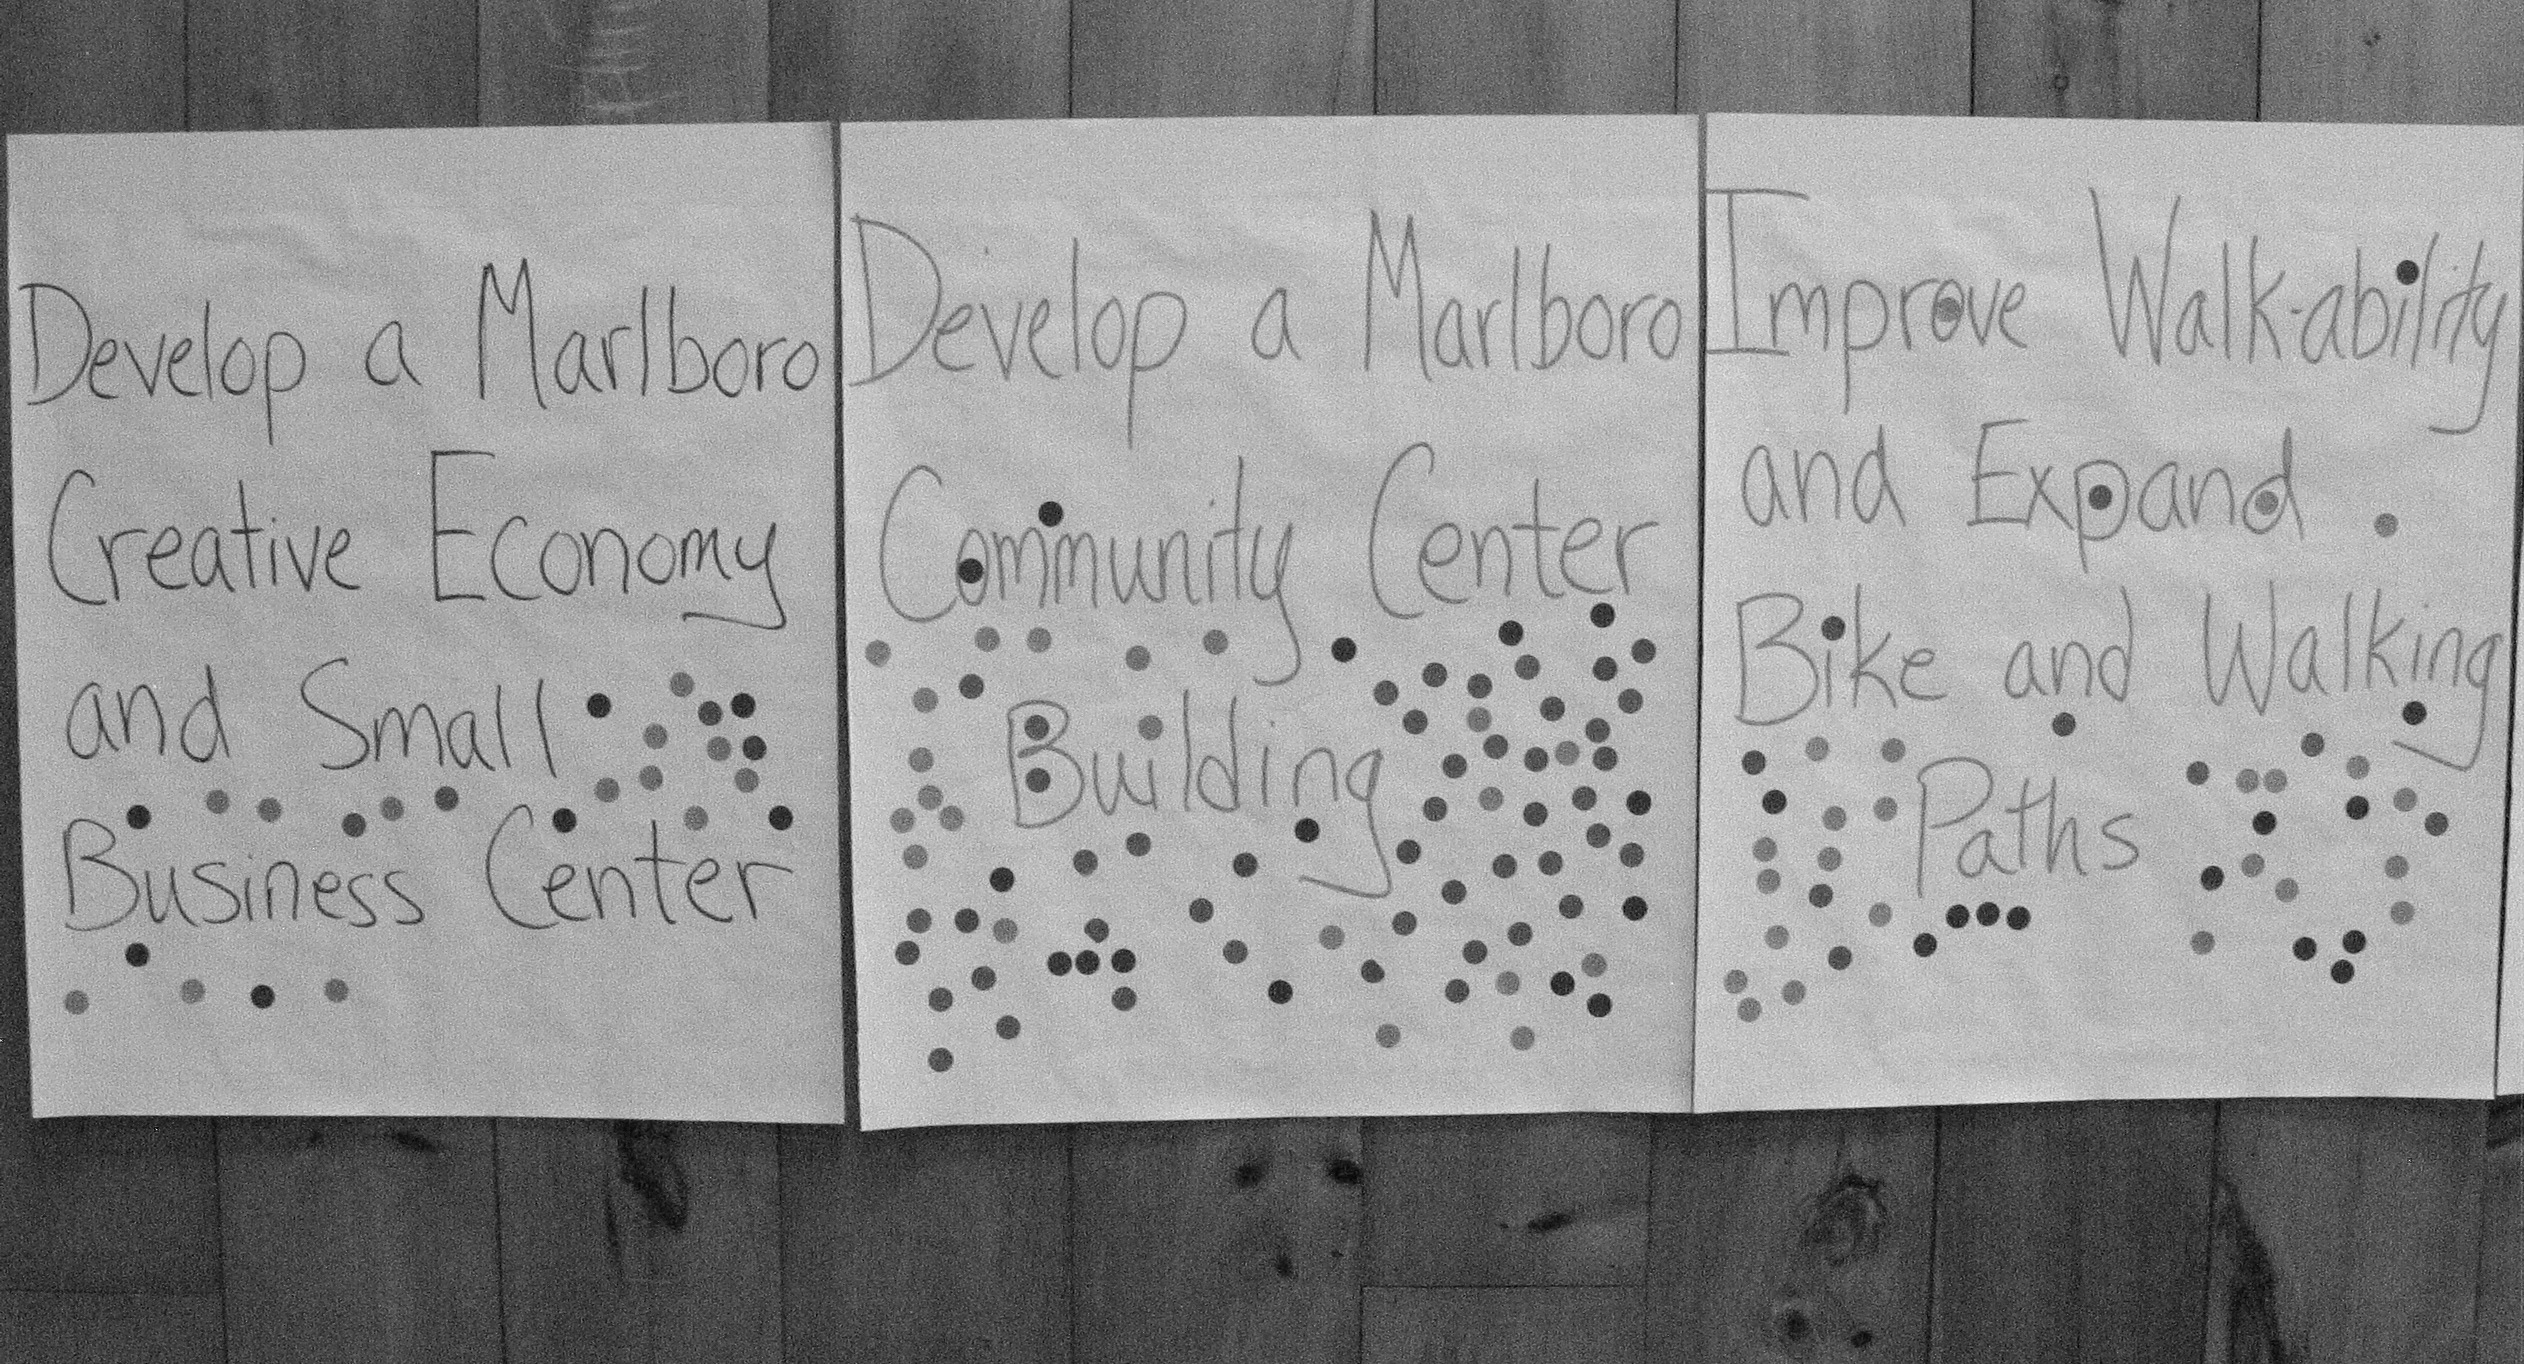 Develop a Marlboro
Creative Economy
and Small
Business Center
Develop a Marlboro
Community Center
Building
Improve Walk-ability
and Expand
Bike and Walking
Paths